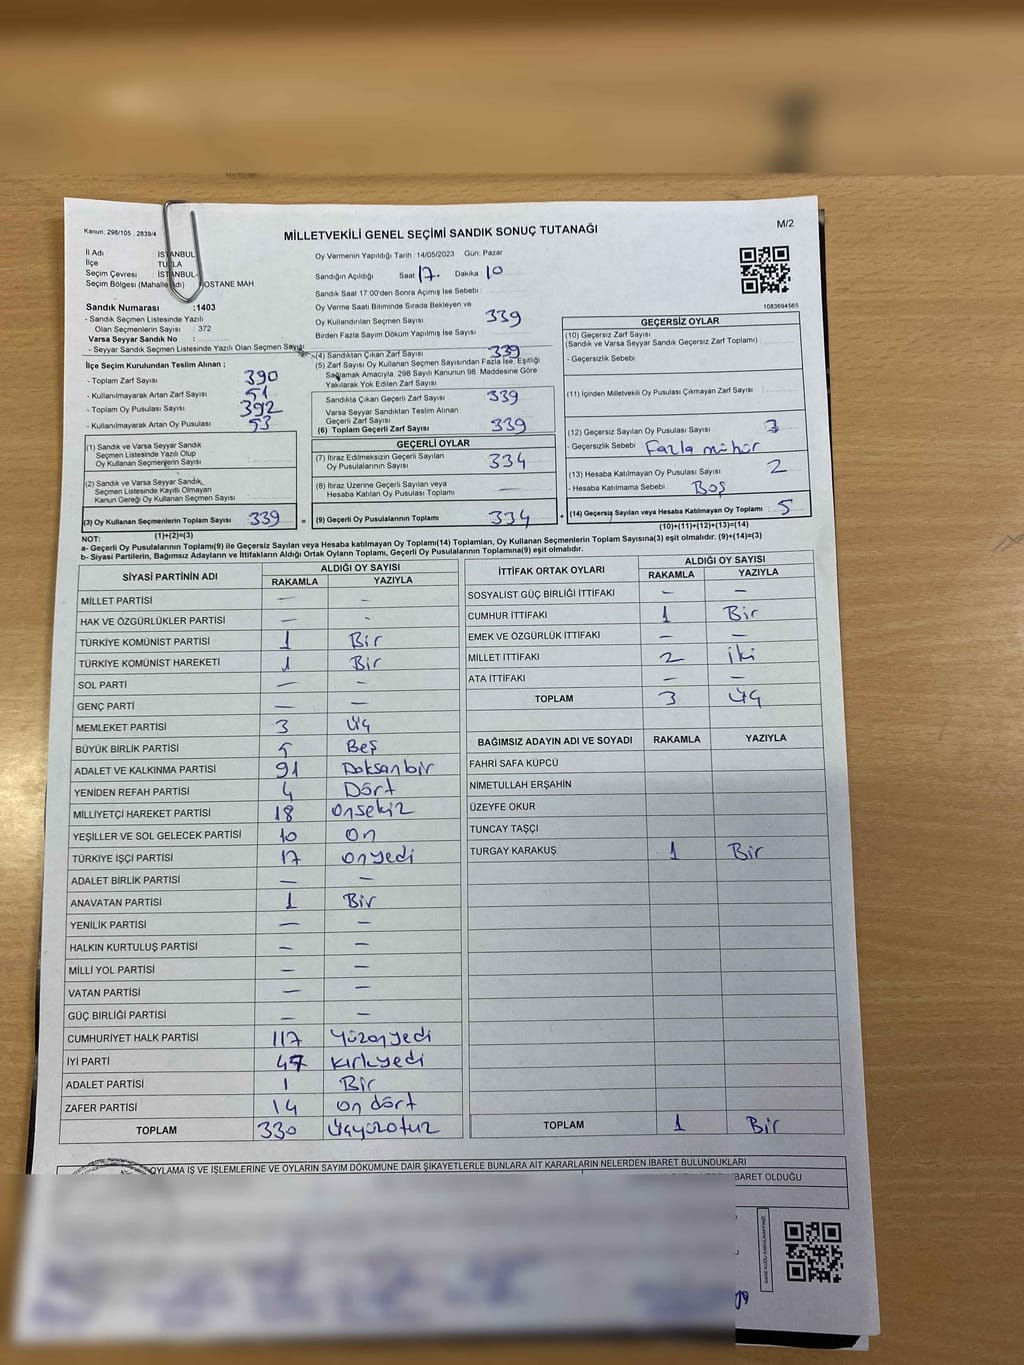 Kanun, 298/105 , 2839/4
MİLLETVEKİLİ GENEL SEÇİMİ SANDIK SONUÇ TUTANAĞI
M/2
İl Adı İSTANBUL
İlçe TUZLA
Seçim Çevresi İSTANBUL-
Seçim Bölgesi (Mahalle Adı) OSTANE MAH
Sandık Numarası :1403
- Sandık Seçmen Listesinde Yazılı
Olan Seçmenlerin Sayısı : 372
Varsa Seyyar Sandık No :
- Seyyar Sandık Seçmen Listesinde Yazılı Olan Seçmen Sayısı
İlçe Seçim Kurulundan Teslim Alınan ;
- Toplam Zarf Sayısı 390
- Kullanılmayarak Artan Zarf Sayısı 51
- Toplam Oy Pusulası Sayısı 392
- Kullanılmayarak Artan Oy Pusulası 53
(1) Sandık ve Varsa Seyyar Sandık
Seçmen Listesinde Yazılı Olup
Oy Kullanan Seçmenlerin Sayısı
(2) Sandık ve Varsa Seyyar Sandık
Seçmen Listesinde Kayıtlı Olmayan
Kanun Gereği Oy Kullanan Seçmen Sayısı
(3) Oy Kullanan Seçmenlerin Toplam Sayısı 339 =
(1)+(2)=(3)
Oy Vermenin Yapıldığı Tarih :14/05/2023 Gün: Pazar
Sandığın Açıldığı Saat 17. Dakika 10
Sandık Saat 17:00'den Sonra Açılmış İse Sebebi :
Oy Verme Saati Bitiminde Sırada Bekleyen ve
Oy Kullandırılan Seçmen Sayısı 339
Birden Fazla Sayım Döküm Yapılmış İse Sayısı :
(4) Sandıktan Çıkan Zarf Sayısı 339
(5) Zarf Sayısı Oy Kullanan Seçmen Sayısından Fazla İse, Eşitliği
Sağlamak Amacıyla, 298 Sayılı Kanunun 98. Maddesine Göre
Yakılarak Yok Edilen Zarf Sayısı
Sandıkta Çıkan Geçerli Zarf Sayısı 339
Varsa Seyyar Sandıktan Teslim Alınan
Geçerli Zarf Sayısı
(6) Toplam Geçerli Zarf Sayısı 339
GEÇERLİ OYLAR
(7) İtiraz Edilmeksizin Geçerli Sayılan
Oy Pusulalarının Sayısı 334
(8) İtiraz Üzerine Geçerli Sayılan veya
Hesaba Katılan Oy Pusulası Toplamı —
(9) Geçerli Oy Pusulalarının Toplamı 334 +
1083694565
GEÇERSİZ OYLAR
(10) Geçersiz Zarf Sayısı
(Sandık ve Varsa Seyyar Sandık Geçersiz Zarf Toplamı)
- Geçersizlik Sebebi
(11) İçinden Milletvekili Oy Pusulası Çıkmayan Zarf Sayısı
(12) Geçersiz Sayılan Oy Pusulası Sayısı 3
- Geçersizlik Sebebi Fazla mühür
(13) Hesaba Katılmayan Oy Pusulası Sayısı 2
- Hesaba Katılmama Sebebi : Boş
(14) Geçersiz Sayılan veya Hesaba Katılmayan Oy Toplamı 5
(10)+(11)+(12)+(13)=(14)
NOT:
a- Geçerli Oy Pusulalarının Toplamı(9) ile Geçersiz Sayılan veya Hesaba katılmayan Oy Toplamı(14) Toplamları, Oy Kullanan Seçmenlerin Toplam Sayısına(3) eşit olmalıdır. (9)+(14)=(3)
b- Siyasi Partilerin, Bağımsız Adayların ve İttifakların Aldığı Ortak Oyların Toplamı, Geçerli Oy Pusulalarının Toplamına(9) eşit olmalıdır.
SİYASİ PARTİNİN ADI ALDIĞI OY SAYISI
RAKAMLA YAZIYLA
MİLLET PARTİSİ — -
HAK VE ÖZGÜRLÜKLER PARTİSİ — -
TÜRKİYE KOMÜNİST PARTİSİ 1 Bir
TÜRKİYE KOMÜNİST HAREKETİ 1 Bir
SOL PARTİ — —
GENÇ PARTİ — —
MEMLEKET PARTİSİ 3 üç
BÜYÜK BİRLİK PARTİSİ 5 Beş
ADALET VE KALKINMA PARTİSİ 91 Doksanbir
YENİDEN REFAH PARTİSİ 4 Dört
MİLLİYETÇİ HAREKET PARTİSİ 18 onsekiz
YEŞİLLER VE SOL GELECEK PARTİSİ 10 on
TÜRKİYE İŞÇİ PARTİSİ 17 onyedi
ADALET BİRLİK PARTİSİ — —
ANAVATAN PARTİSİ 1 Bir
YENİLİK PARTİSİ — —
HALKIN KURTULUŞ PARTİSİ — —
MİLLİ YOL PARTİSİ — —
VATAN PARTİSİ — —
GÜÇ BİRLİĞİ PARTİSİ — —
CUMHURİYET HALK PARTİSİ 117 yüzonyedi
İYİ PARTİ 47 kırkyedi
ADALET PARTİSİ 1 Bir
ZAFER PARTİSİ 14 on dört
TOPLAM 330 üçyüzotuz
İTTİFAK ORTAK OYLARI ALDIĞI OY SAYISI
RAKAMLA YAZIYLA
SOSYALİST GÜÇ BİRLİĞİ İTTİFAKI — —
CUMHUR İTTİFAKI 1 Bir
EMEK VE ÖZGÜRLÜK İTTİFAKI — —
MİLLET İTTİFAKI 2 iki
ATA İTTİFAKI — —
TOPLAM 3 üç
BAĞIMSIZ ADAYIN ADI VE SOYADI RAKAMLA YAZIYLA
FAHRİ SAFA KÜPCÜ
NİMETULLAH ERŞAHİN
ÜZEYFE OKUR
TUNCAY TAŞÇI
TURGAY KARAKUŞ 1 Bir
TOPLAM 1 Bir
OYLAMA İŞ VE İŞLEMLERİNE VE OYLARIN SAYIM DÖKÜMÜNE DAİR ŞİKAYETLERLE BUNLARA AİT KARARLARIN NELERDEN İBARET BULUNDUKLARI
İBARET OLDUĞU